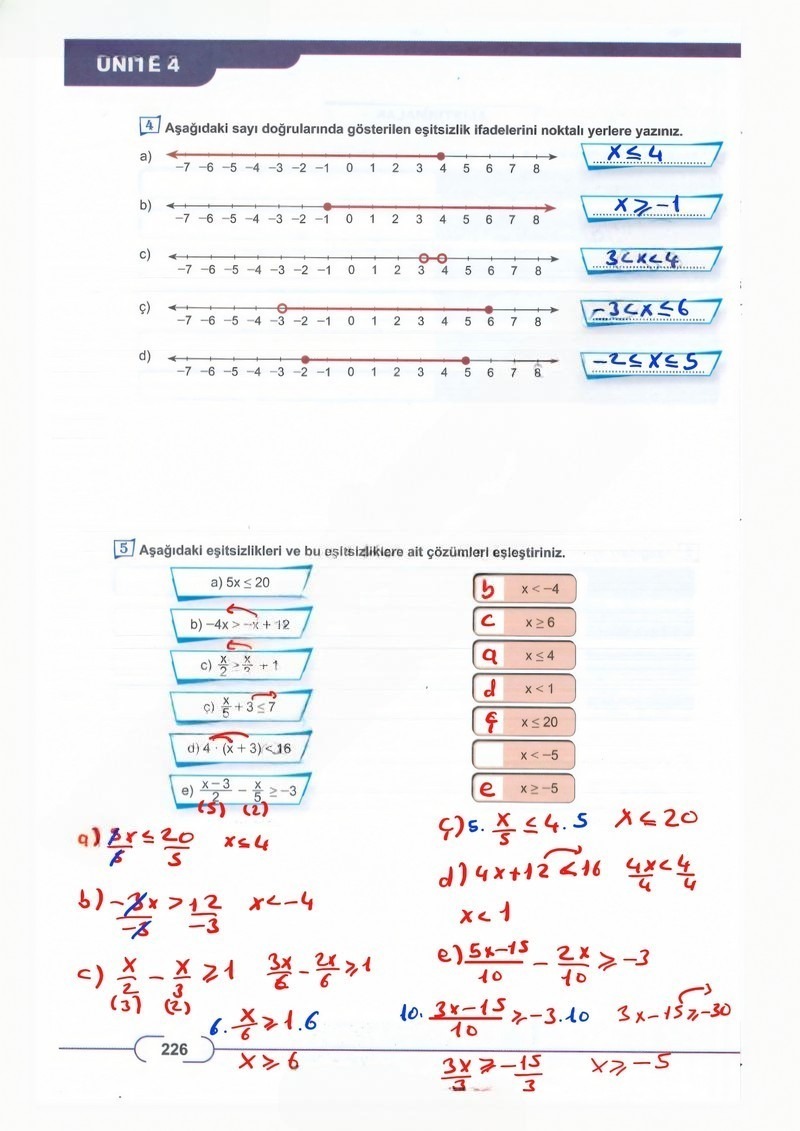 ÜNİTE 4
4 Aşağıdaki sayı doğrularında gösterilen eşitsizlik ifadelerini noktalı yerlere yazınız.
a) -7 -6 -5 -4 -3 -2 -1 0 1 2 3 4 5 6 7 8 x ≤ 4
b) -7 -6 -5 -4 -3 -2 -1 0 1 2 3 4 5 6 7 8 x ≥ -1
c) -7 -6 -5 -4 -3 -2 -1 0 1 2 3 4 5 6 7 8 3 < x < 4
ç) -7 -6 -5 -4 -3 -2 -1 0 1 2 3 4 5 6 7 8 -3 < x ≤ 6
d) -7 -6 -5 -4 -3 -2 -1 0 1 2 3 4 5 6 7 8 -2 ≤ x ≤ 5
5 Aşağıdaki eşitsizlikleri ve bu eşitsizliklere ait çözümleri eşleştiriniz.
a) 5x ≤ 20 b x < -4
b) -4x > -x + 12 c x ≥ 6
c) x/2 ≥ x/3 + 1 a x ≤ 4
ç) x/5 + 3 ≤ 7 d x < 1
d) 4 · (x + 3) < 16 ç x ≤ 20
x < -5
e) x-3/2 - x/5 ≥ -3 e x ≥ -5
(5) (2)
a) 5x/5 ≤ 20/5 x ≤ 4
b) -3x/-3 > 12/-3 x < -4
c) x/2 - x/3 ≥ 1 3x/6 - 2x/6 ≥ 1
(3) (2)
6. x/6 ≥ 1.6
x ≥ 6
ç) 5. x/5 ≤ 4.5 x ≤ 20
d) 4x + 12 < 16 4x/4 < 4/4
x < 1
e) 5x-15/10 - 2x/10 ≥ -3
10. 3x-15/10 ≥ -3.10 3x-15 ≥ -30
3x/3 ≥ -15/3 x ≥ -5
226